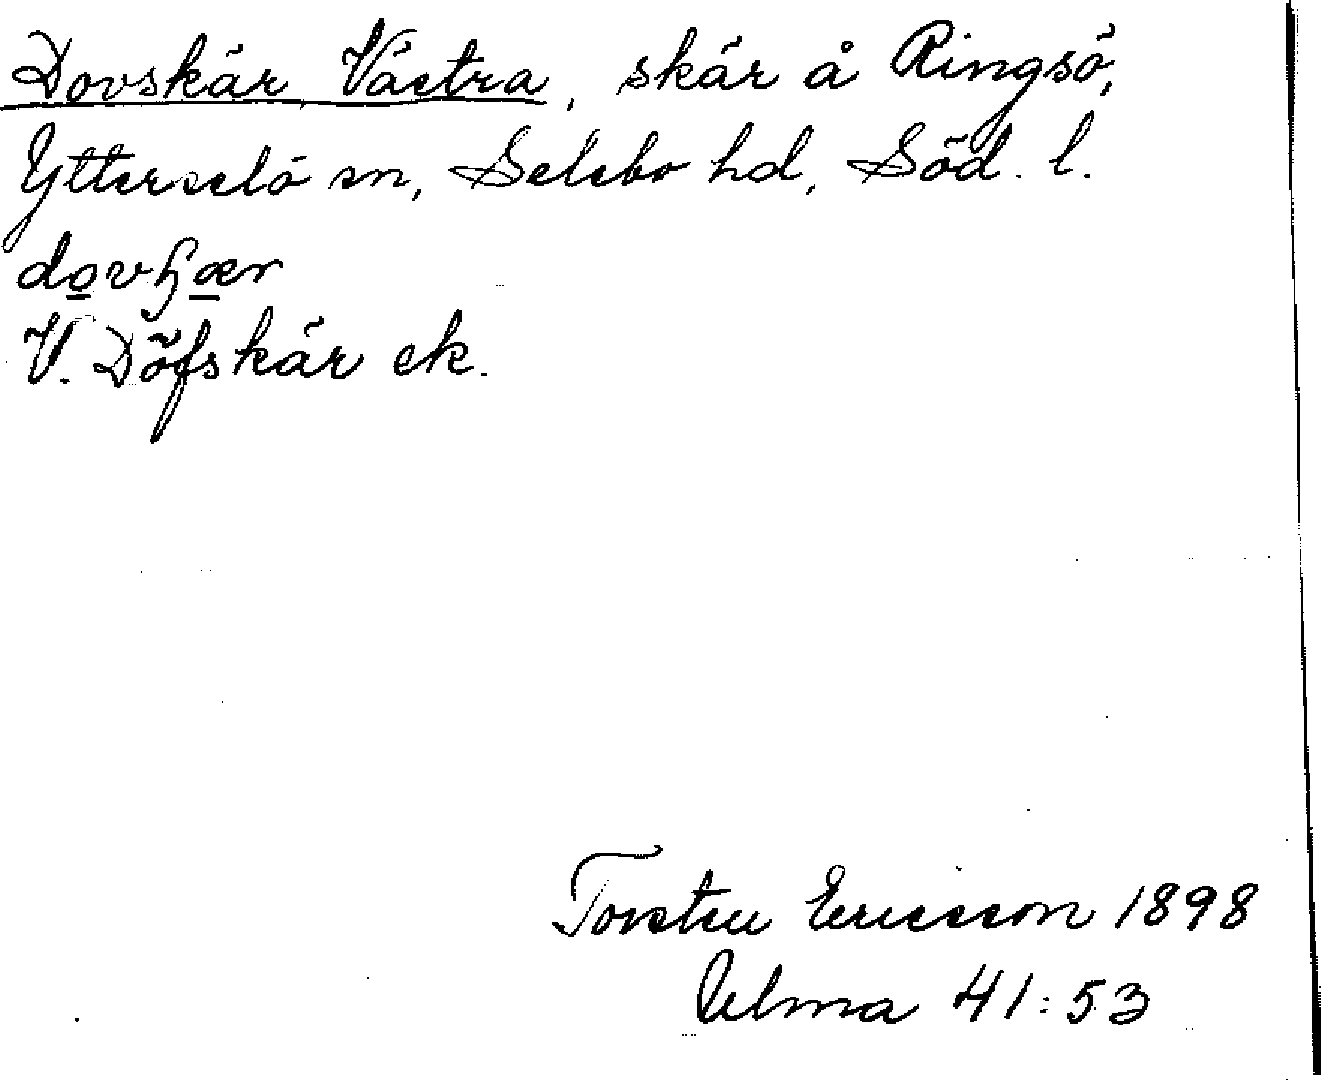 Dovskär, Västra, skär å Ringsö,
Ytterselö sn, Selebo hd, Söd. l.
dovʃær
V. Döfskär ek.
Torsten Ericsson 1898
Ulma 41:53